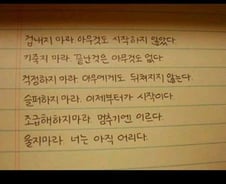 겁내지 마라 아무것도 시작하지 않았다.
기죽지 마라. 끝난것은 아무것도 없다.
걱정하지 마라 아무에게도 뒤쳐지지 않는다.
슬퍼하지 마라. 이제부터가 시작이다.
조급해하지마라 멈추기엔 이르다.
울지마라 너는 아직 어리다.